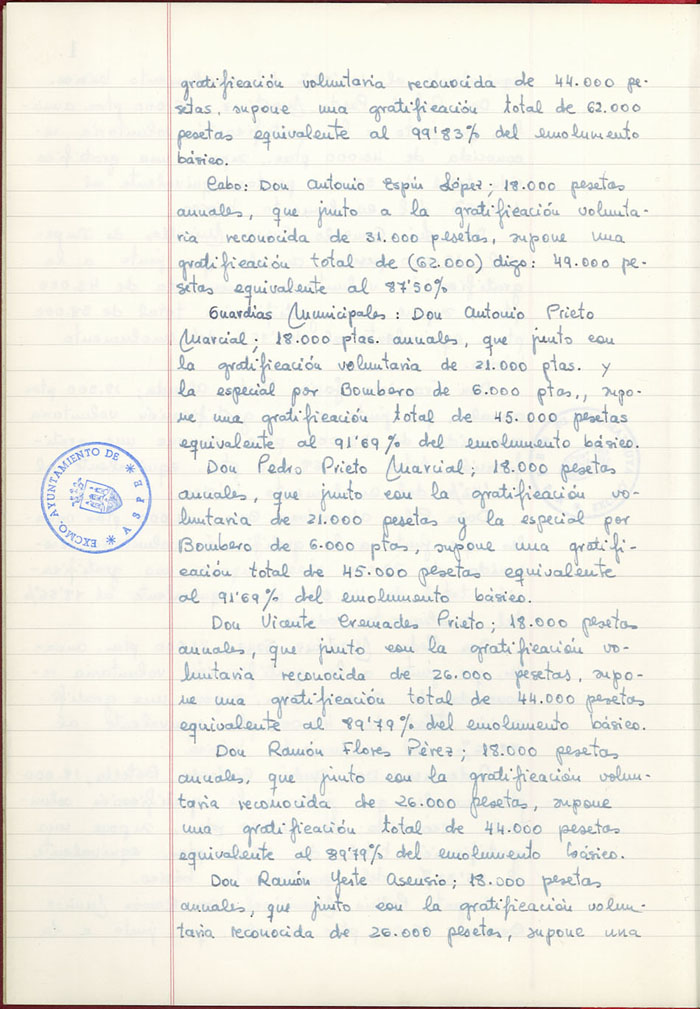 gratificación voluntaria reconocida de 44.000 pe-
setas, supone una gratificación total de 62.000
pesetas equivalente al 99'83% del emolumento
básico.
Cabo: Don Antonio Espín López; 18.000 pesetas
anuales, que junto a la gratificación volunta-
ria reconocida de 31.000 pesetas, supone una
gratificación total de (62.000) digo: 49.000 pe-
setas equivalente al 87'50%
Guardias Municipales: Don Antonio Prieto
Marcial: 18.000 ptas. anuales, que junto con
la gratificación voluntaria de 21.000 ptas. y
la especial por Bombero de 6.000 ptas., supo-
ne una gratificación total de 45.000 pesetas
equivalente al 91'69% del emolumento básico.
Don Pedro Prieto Marcial; 18.000 pesetas
anuales, que junto con la gratificación vo-
luntaria de 21.000 pesetas y la especial por
Bombero de 6.000 ptas, supone una gratifi-
cación total de 45.000 pesetas equivalente
al 91'69% del emolumento básico.
Don Vicente Cremades Prieto; 18.000 pesetas
anuales, que junto con la gratificación vo-
luntaria reconocida de 26.000 pesetas, supo-
ne una gratificación total de 44.000 pesetas
equivalente al 89'79% del emolumento básico.
Don Ramón Flores Pérez; 18.000 pesetas
anuales, que junto con la gratificación volun-
taria reconocida de 26.000 pesetas, supone
una gratificación total de 44.000 pesetas
equivalente al 89'79% del emolumento básico.
Don Ramón Yeste Asensio; 18.000 pesetas
anuales, que junto con la gratificación volun-
taria reconocida de 26.000 pesetas, supone una
EXCMO. AYUNTAMIENTO DE
* ASPE *